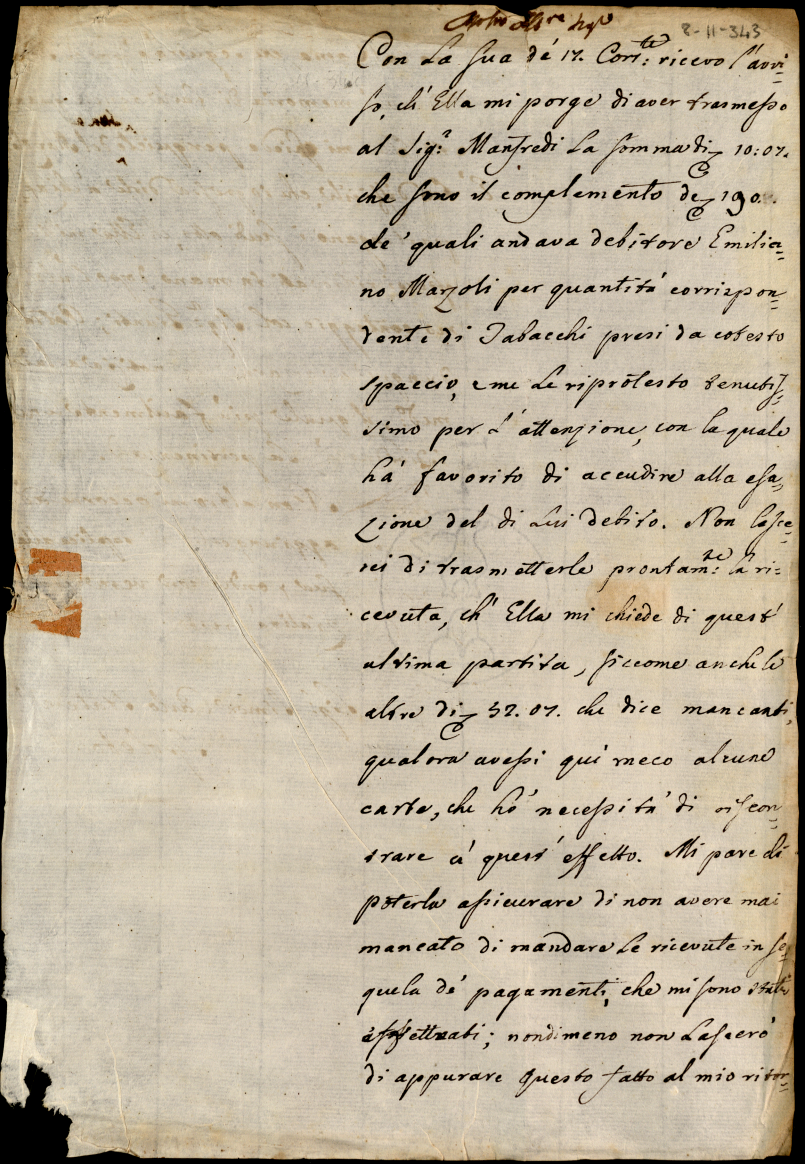 8-11-343
Con La sua de' 17. Corr.te: ricevo l'avvi=
so, ch' Ella mi porge di aver trasmesso
al Sig.r: Manfredi La somma di 10:07.
che sono il complemento de 190.
de' quali andava debitore Emilia=
no Marzoli per quantità corrispon=
dente di Tabacchi presi da cotesto
spaccio, e me Le riprotesto tenutis=
simo per L'attenzione, con la quale
hà favorito di accudire alla esa=
zione del di Lui debito. Non lasce=
rei di trasmetterle prontam.te: la ri=
cevuta, ch' Ella mi chiede di quest'
ultima partita, siccome anche le
altre di 52.07. che dice mancanti,
qualora avessi quì meco alcune
carte, che hò necessità di riscon=
trare à quest' effetto. Mi pare di
poterla assicurare di non avere mai
mancato di mandare Le ricevute in se=
quela de' pagamenti, che mi sono stati
effettuati; nondimeno non Lascerò
di appurare questo fatto al mio ritor=